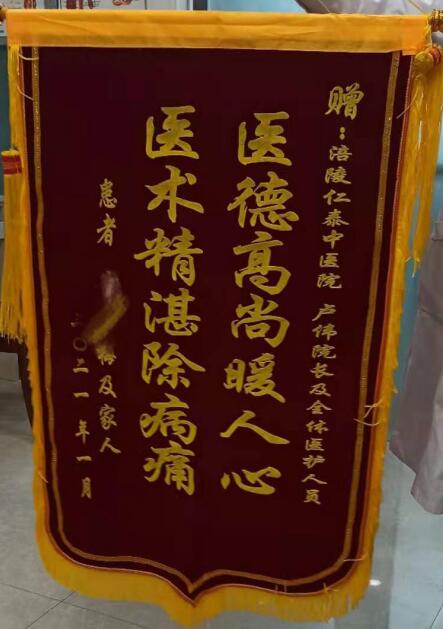 赠：涪陵仁泰中医院 卢伟院长及全体医护人员
医德高尚暖人心
医术精湛除病痛
患者 梅及家人
二〇二一年一月